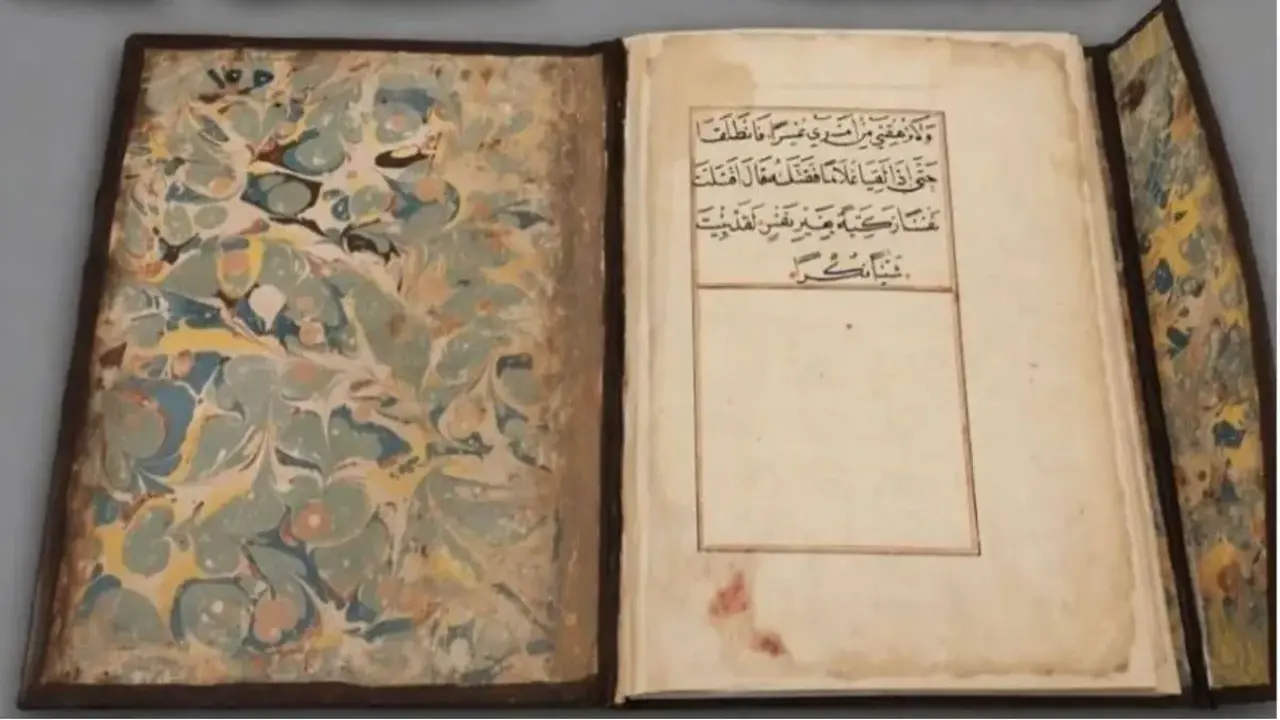 وَلَا تُرْهِقْنِي مِنْ أَمْرِي عُسْرًا فَانْطَلَقَا
حَتَّى اِذَا لَقِيَا غُلَامًا فَقَتَلَهُ قَالَ اَقَتَلْتَ
نَفْسًا زَكِيَّةً بِغَيْرِ نَفْسٍ لَقَدْ جِئْتَ
شَيْئًا نُكْرًا